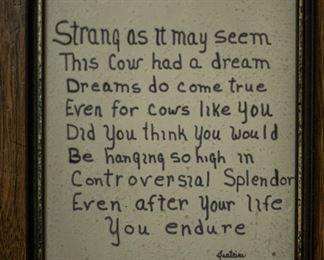 Strang as it may seem
This Cow had a dream
Dreams do come true
Even for cows like you
Did you think you would
Be hanging so high in
Controversial Splendor
Even after your life
You endure